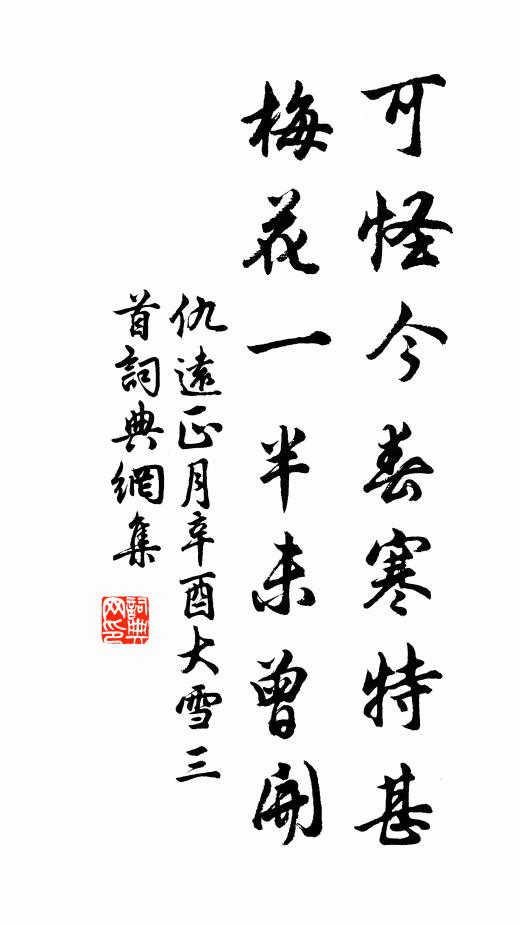 可怪今春寒特甚
梅花一半未曾開
仇遠正月辛酉大雪三
首詞典網集
詞典
网印